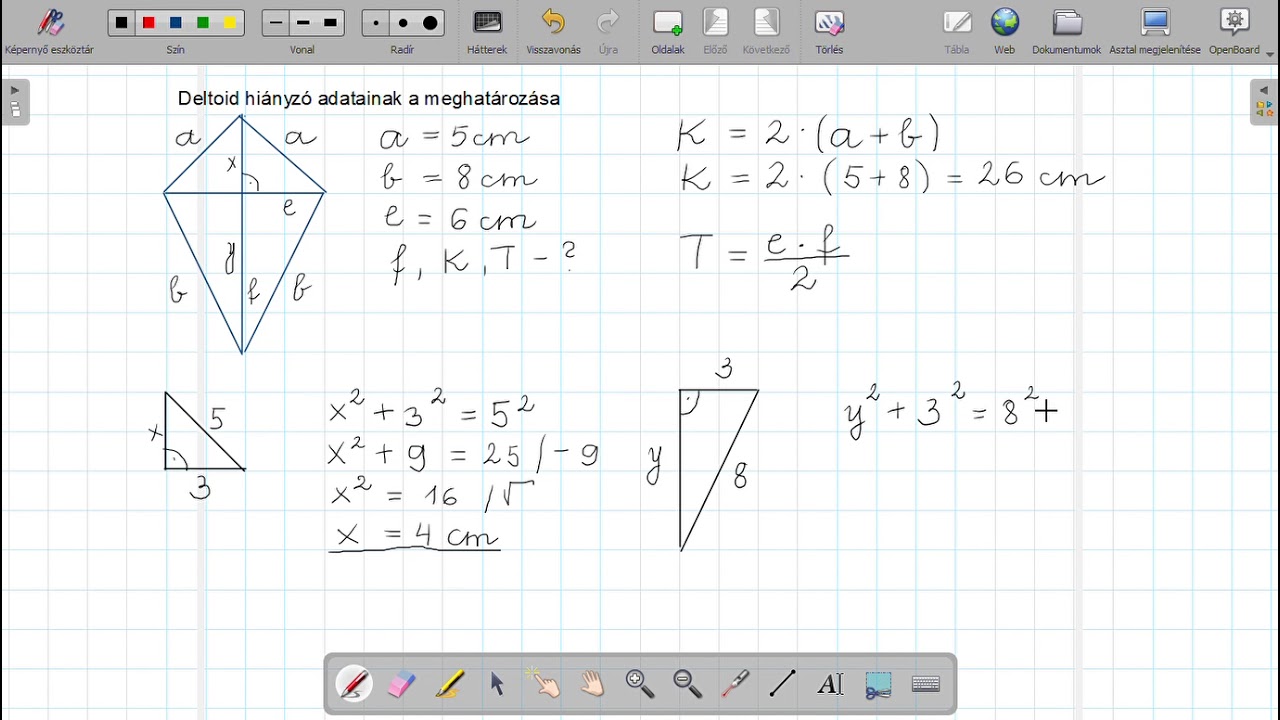 Képernyő eszköztár
Szín
Vonal
Radír
Hátterek
Visszavonás
Újra
Oldalak
Előző
Következő
Törlés
Tábla
Web
Dokumentumok
Asztal megjelenítése
OpenBoard
Deltoid hiányzó adatainak a meghatározása
a
a
x
e
y
b
f
b
a = 5 cm
b = 8 cm
e = 6 cm
f, K, T - ?
K = 2 · (a + b)
K = 2 · (5 + 8) = 26 cm
T = e · f / 2
x
5
3
x² + 3² = 5²
x² + 9 = 25 / - 9
x² = 16 / √
x = 4 cm
3
y
8
y² + 3² = 8² +
AI